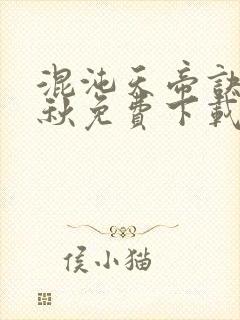 混沌天帝訣
秋免費下載
侯小猫